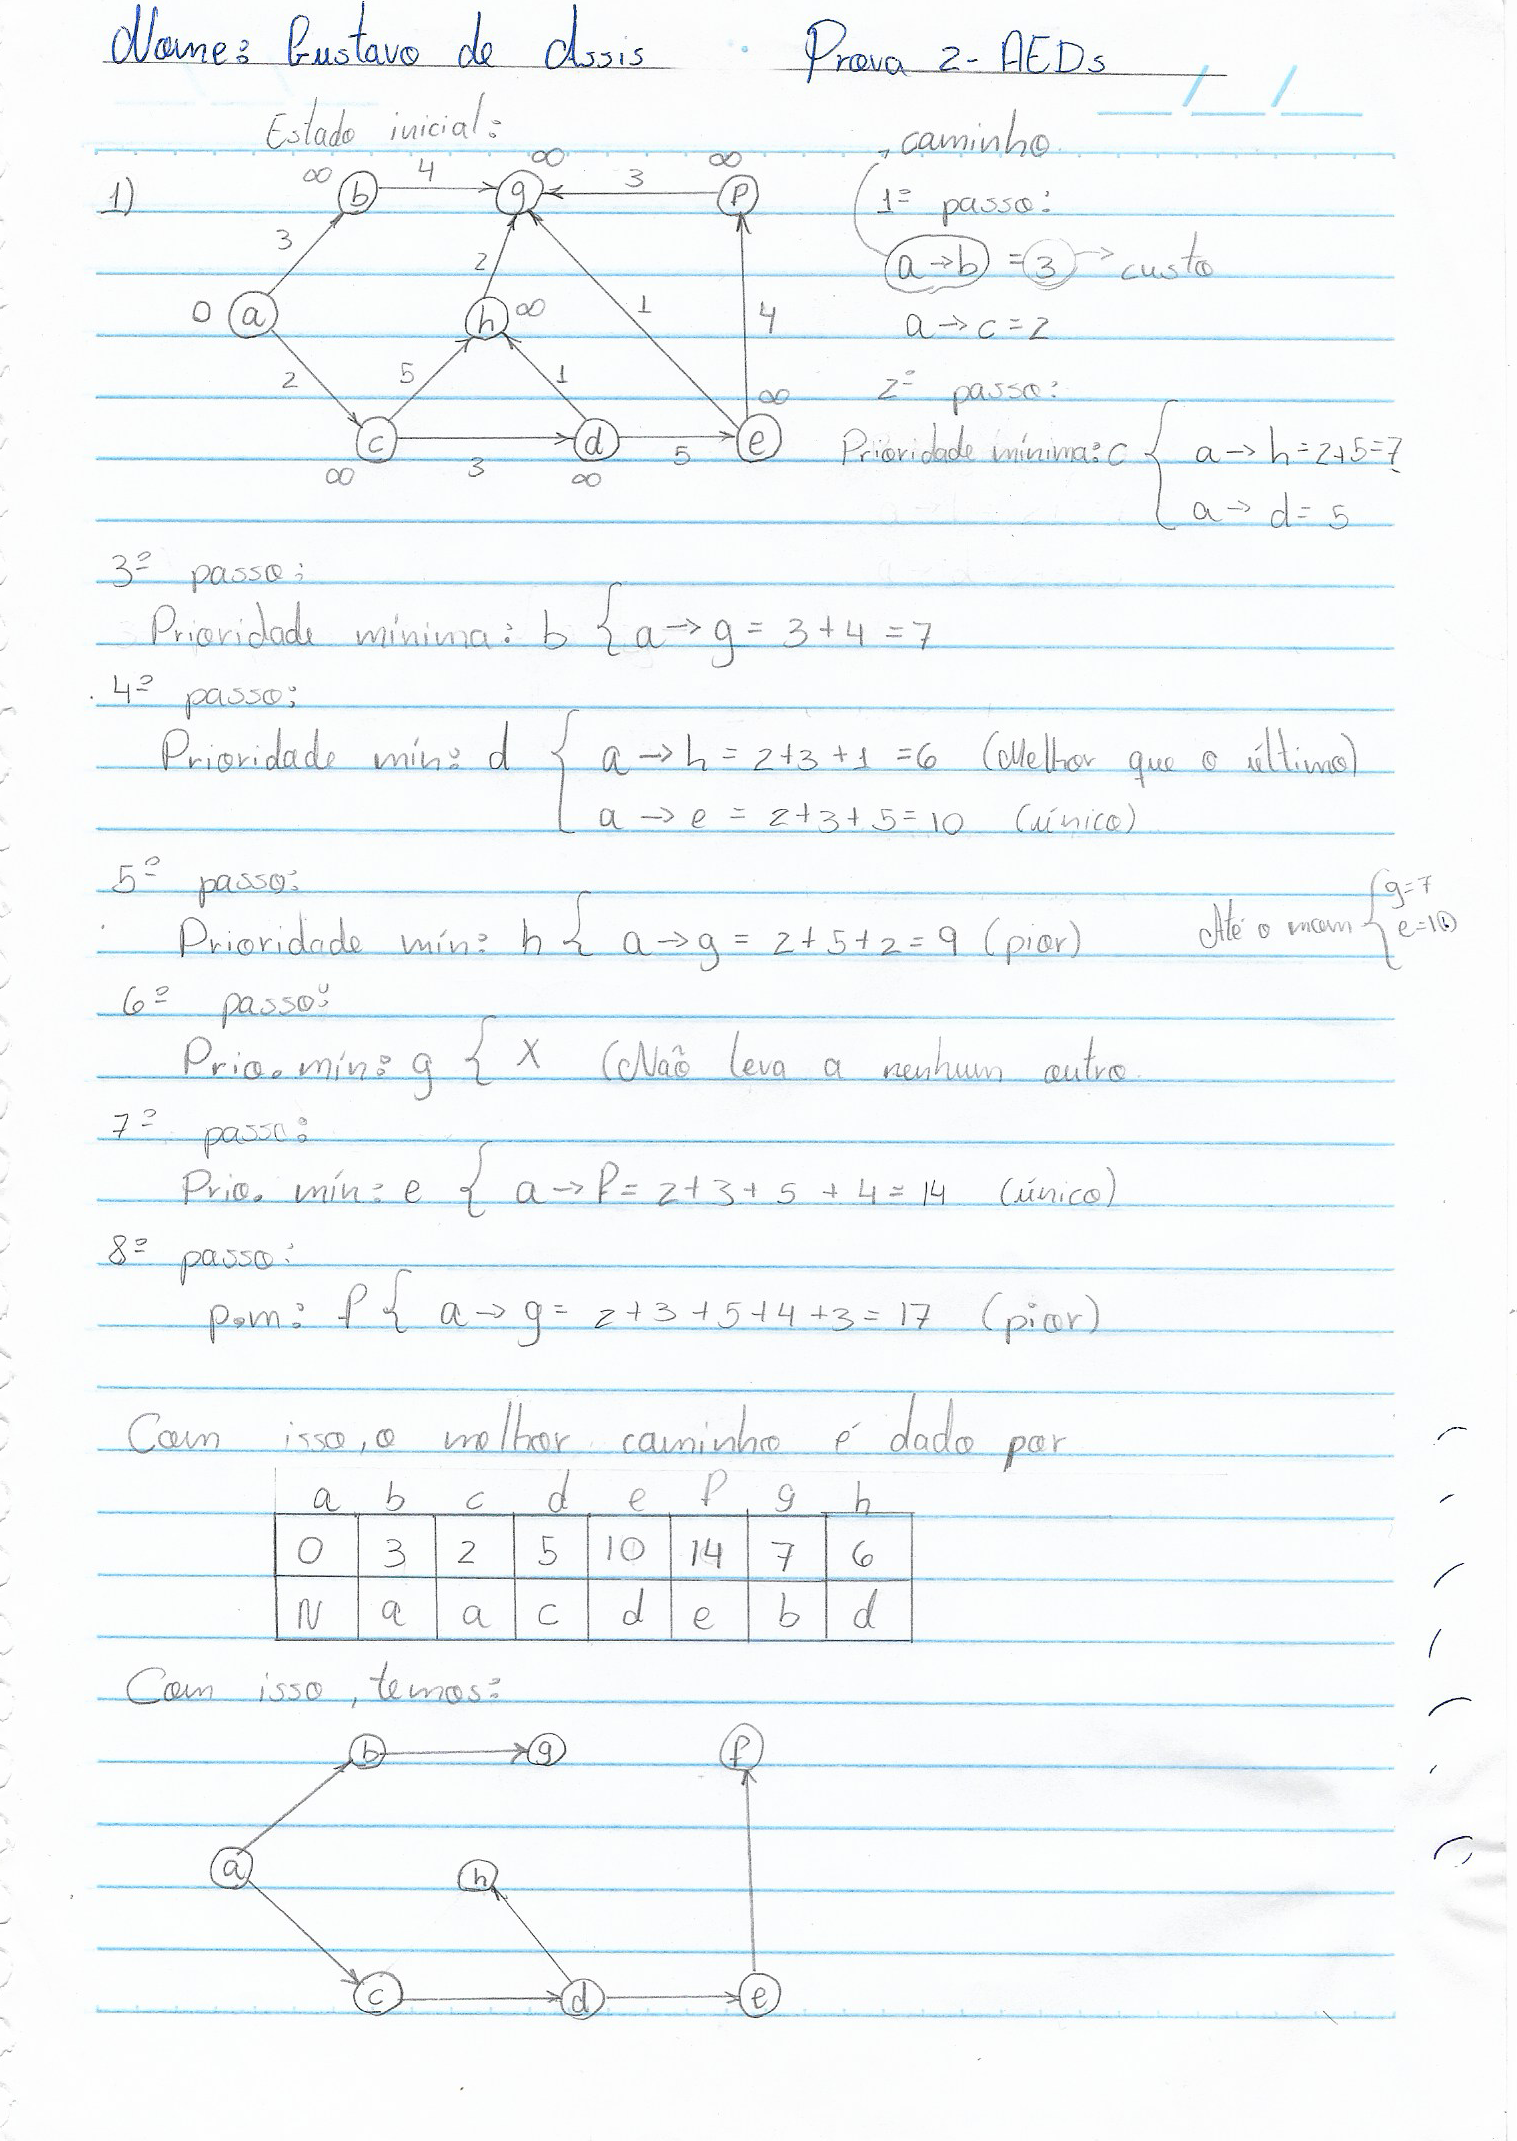 Nome: Gustavo de Assis Prova 2- AEDs
Estado inicial:
1)
∞ b 4 g ∞ 3 f ∞
3 2 1 4
0 a h ∞
2 5 1 ∞
c 3 d 5 e
∞ ∞
caminho
1º passo:
a → b = 3 → custo
a → c = 2
2º passo:
Prioridade mínima: c { a → h = 2+5=7
a → d = 5
3º passo:
Prioridade mínima: b { a → g = 3+4=7
4º passo:
Prioridade mín: d { a → h = 2+3+1=6 (Melhor que o último)
a → e = 2+3+5=10 (único)
5º passo:
Prioridade mín: h { a → g = 2+5+2=9 (pior) Até o mom { g=7
e=10
6º passo:
Prio. mín: g { X (Não leva a nenhum outro
7º passo:
Prio. mín: e { a → f = 2+3+5+4=14 (único)
8º passo:
p.m: f { a → g = 2+3+5+4+3=17 (pior)
Com isso, o melhor caminho é dado por
a b c d e f g h
0 3 2 5 10 14 7 6
N a a c d e b d
Com isso, temos:
b g f
a h
c d e